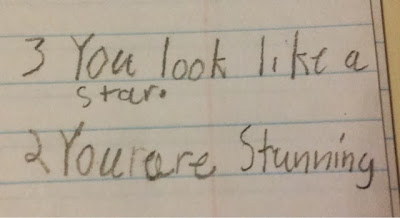 3 You look like a
star.
2 Your are Stunning